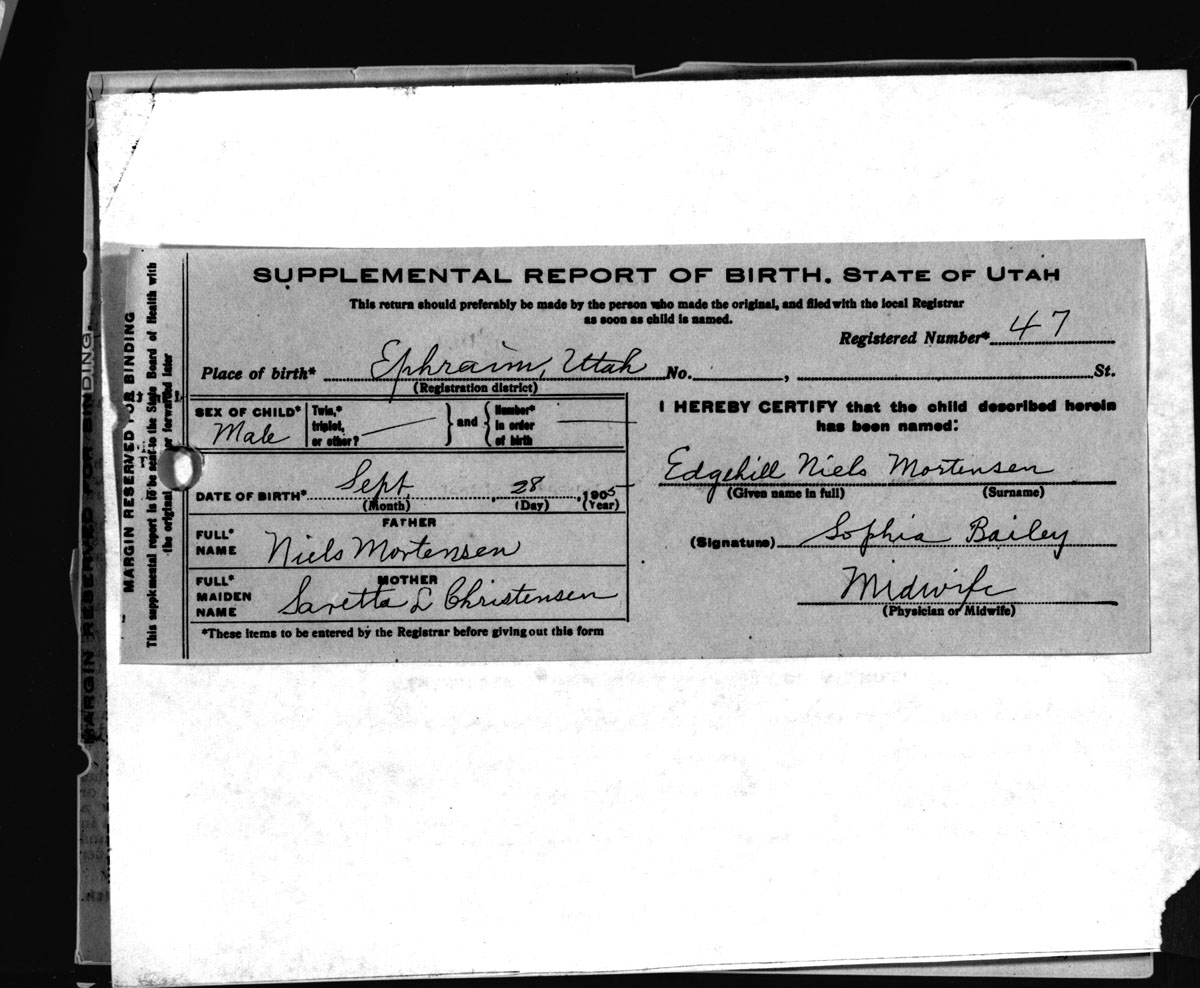 SUPPLEMENTAL REPORT OF BIRTH. STATE OF UTAH
This return should preferably be made by the person who made the original, and filed with the local Registrar
as soon as child is named.
Registered Number* 47
Place of birth* Ephraim, Utah No. , St.
(Registration district)
SEX OF CHILD*
Male
Twin,*
triplet,
or other?
and
Number*
in order
of birth
DATE OF BIRTH* Sept , 28 , 1905
(Month) (Day) (Year)
FATHER
FULL*
NAME
Niels Mortensen
MOTHER
FULL*
MAIDEN
NAME
Saretta L Christensen
*These items to be entered by the Registrar before giving out this form
I HEREBY CERTIFY that the child described herein
has been named:
Edgehill Niels Mortensen
(Given name in full) (Surname)
(Signature) Sophia Bailey
Midwife
(Physician or Midwife)
MARGIN RESERVED FOR BINDING
This supplemental report is to be sent to the State Board of Health with
the original or forwarded later
MARGIN RESERVED FOR BINDING.